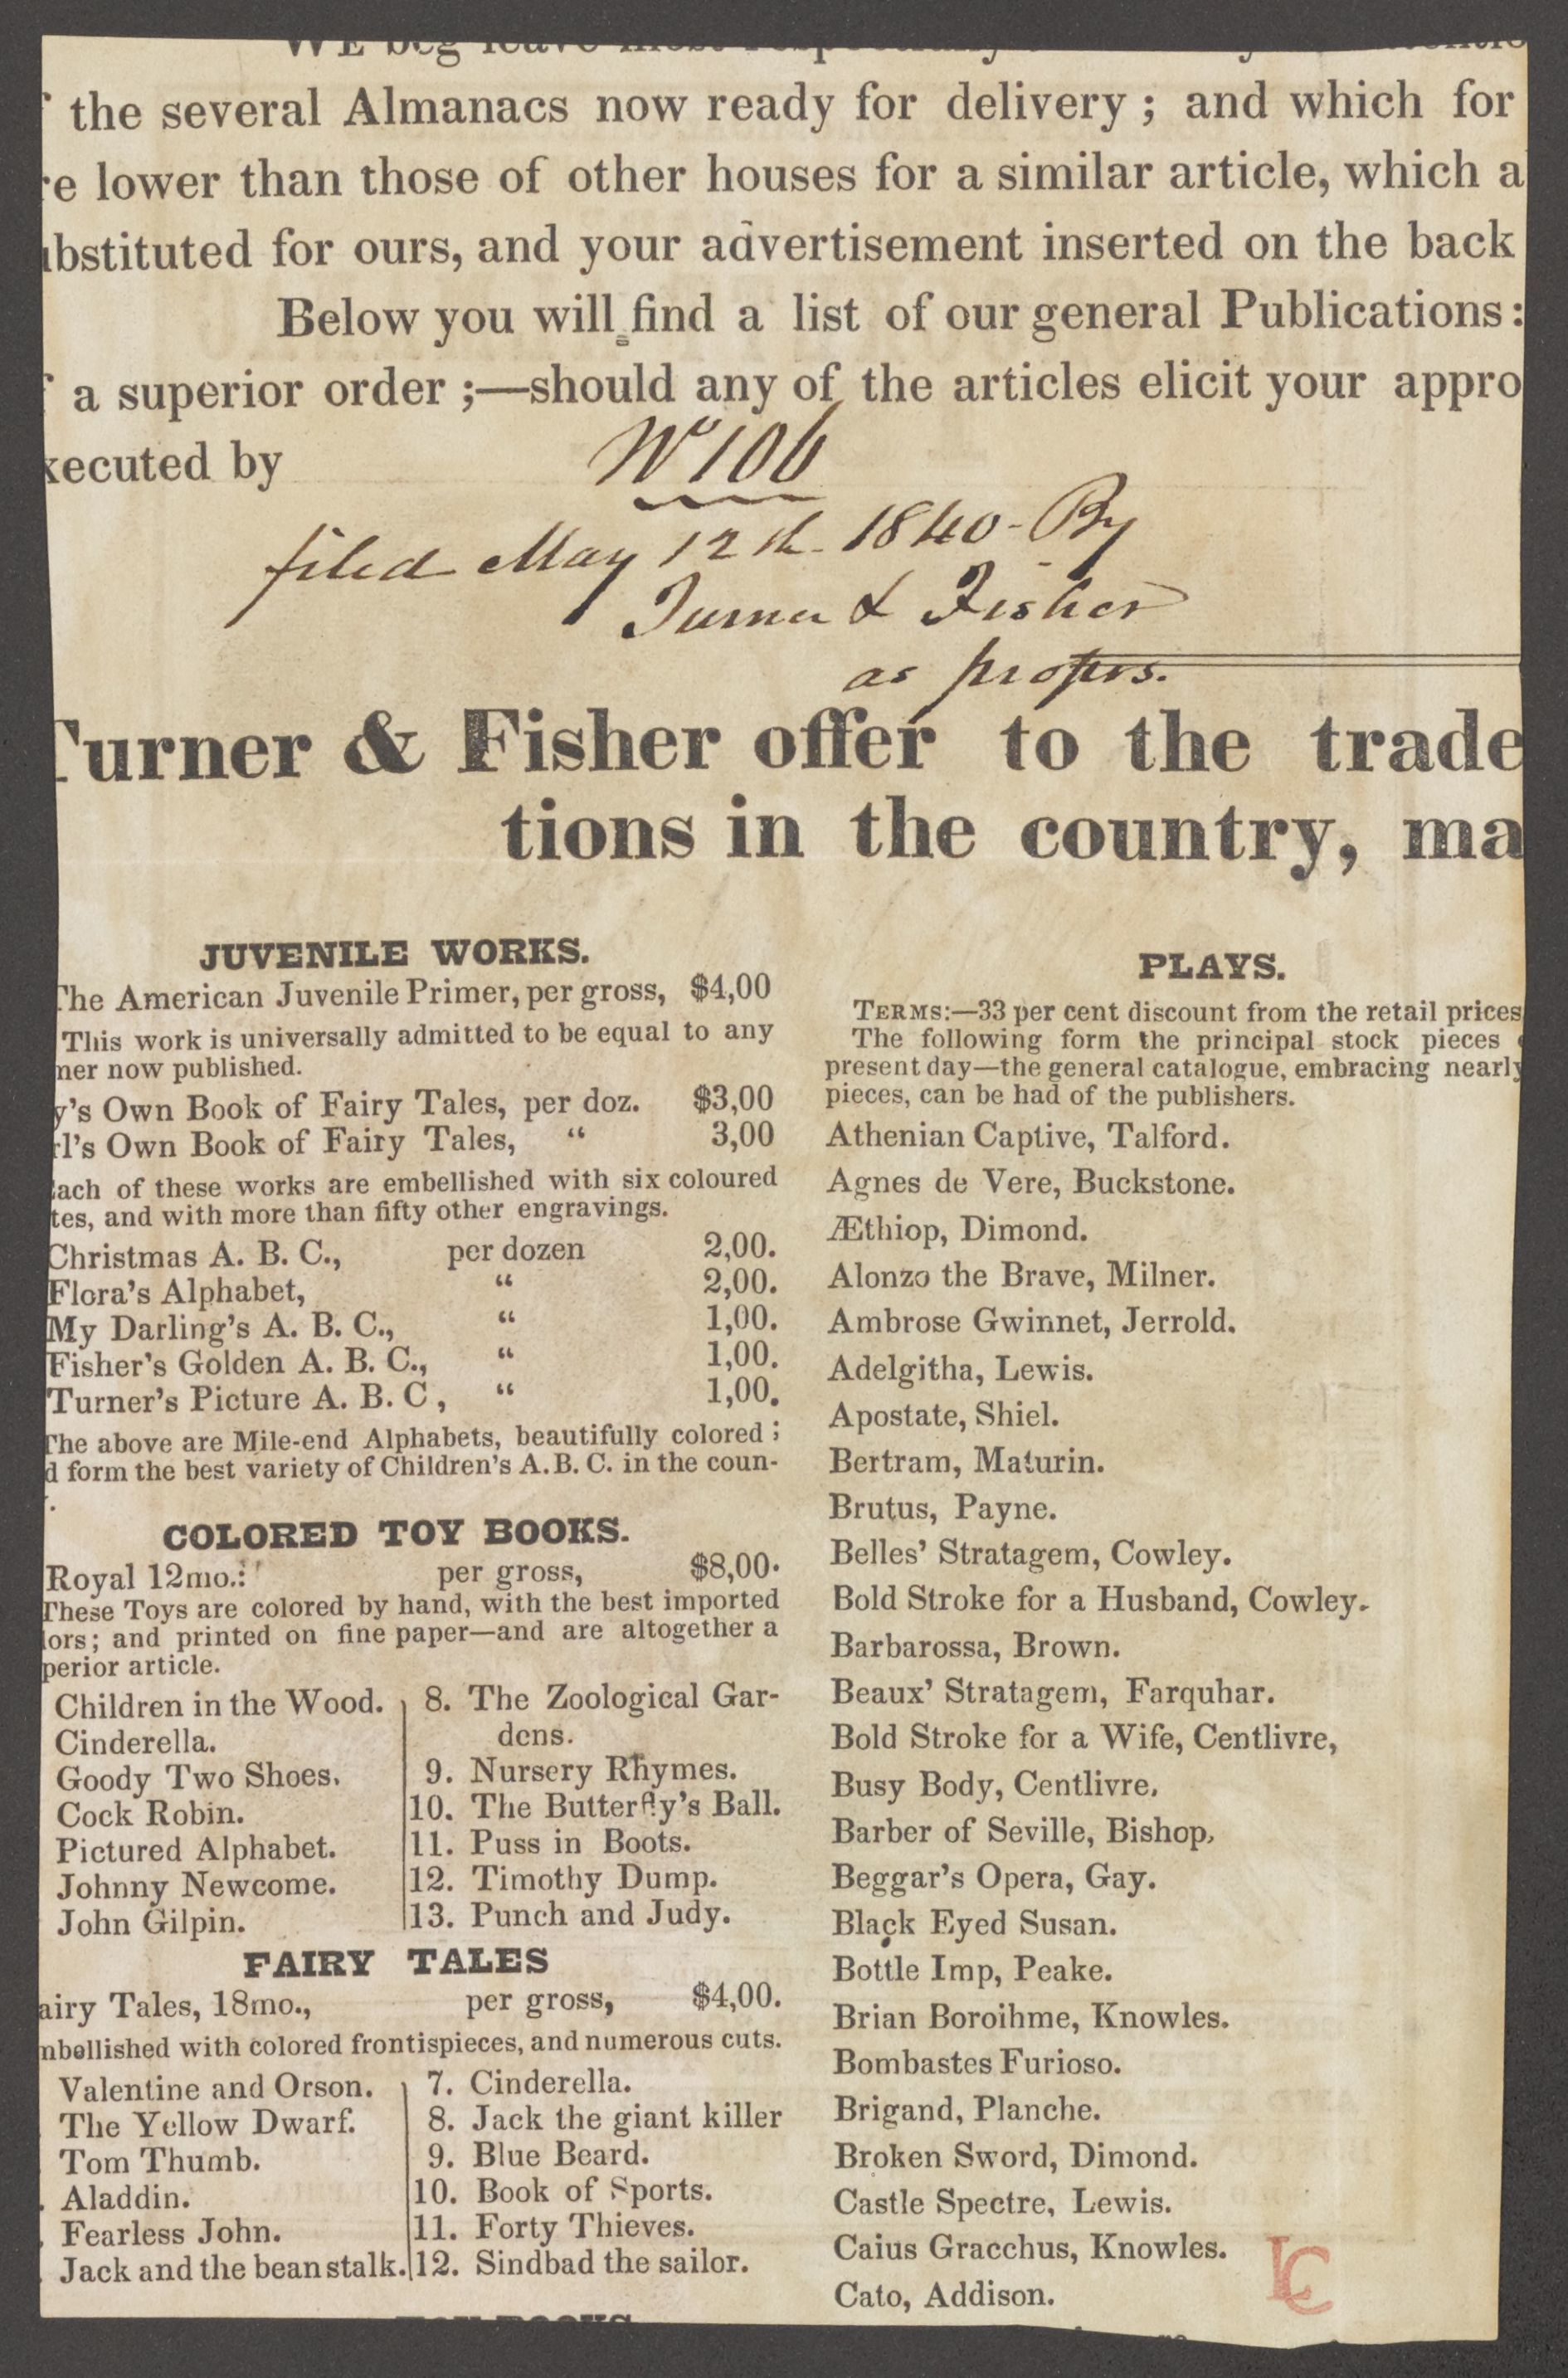 WE beg leave most
the several Almanacs now ready for delivery ; and which for
re lower than those of other houses for a similar article, which a
ubstituted for ours, and your advertisement inserted on the back
Below you will find a list of our general Publications :
f a superior order ;—should any of the articles elicit your appro
xecuted by
No 106
filed May 12th. 1840 - By
Turner & Fisher
as proprs.
Turner & Fisher offer to the trade
tions in the country, ma
JUVENILE WORKS.
The American Juvenile Primer, per gross, $4,00
This work is universally admitted to be equal to any
mer now published.
y's Own Book of Fairy Tales, per doz. $3,00
rl's Own Book of Fairy Tales, “ 3,00
Each of these works are embellished with six coloured
tes, and with more than fifty other engravings.
Christmas A. B. C., per dozen 2,00.
Flora's Alphabet, “ 2,00.
My Darling's A. B. C., “ 1,00.
Fisher's Golden A. B. C., “ 1,00.
Turner's Picture A. B. C , “ 1,00.
The above are Mile-end Alphabets, beautifully colored ;
d form the best variety of Children's A. B. C. in the coun-
.
COLORED TOY BOOKS.
Royal 12mo.: per gross, $8,00.
These Toys are colored by hand, with the best imported
lors; and printed on fine paper—and are altogether a
perior article.
Children in the Wood.
Cinderella.
Goody Two Shoes.
Cock Robin.
Pictured Alphabet.
Johnny Newcome.
John Gilpin.
8. The Zoological Gar-
dens.
9. Nursery Rhymes.
10. The Butterfly's Ball.
11. Puss in Boots.
12. Timothy Dump.
13. Punch and Judy.
FAIRY TALES
airy Tales, 18mo., per gross, $4,00.
mbellished with colored frontispieces, and numerous cuts.
Valentine and Orson.
The Yellow Dwarf.
Tom Thumb.
. Aladdin.
. Fearless John.
. Jack and the bean stalk.
7. Cinderella.
8. Jack the giant killer
9. Blue Beard.
10. Book of Sports.
11. Forty Thieves.
12. Sindbad the sailor.
PLAYS.
TERMS:—33 per cent discount from the retail prices
The following form the principal stock pieces
present day—the general catalogue, embracing nearly
pieces, can be had of the publishers.
Athenian Captive, Talford.
Agnes de Vere, Buckstone.
Æthiop, Dimond.
Alonzo the Brave, Milner.
Ambrose Gwinnet, Jerrold.
Adelgitha, Lewis.
Apostate, Shiel.
Bertram, Maturin.
Brutus, Payne.
Belles' Stratagem, Cowley.
Bold Stroke for a Husband, Cowley.
Barbarossa, Brown.
Beaux' Stratagem, Farquhar.
Bold Stroke for a Wife, Centlivre,
Busy Body, Centlivre.
Barber of Seville, Bishop,
Beggar's Opera, Gay.
Black Eyed Susan.
Bottle Imp, Peake.
Brian Boroihme, Knowles.
Bombastes Furioso.
Brigand, Planche.
Broken Sword, Dimond.
Castle Spectre, Lewis.
Caius Gracchus, Knowles.
Cato, Addison.
LC